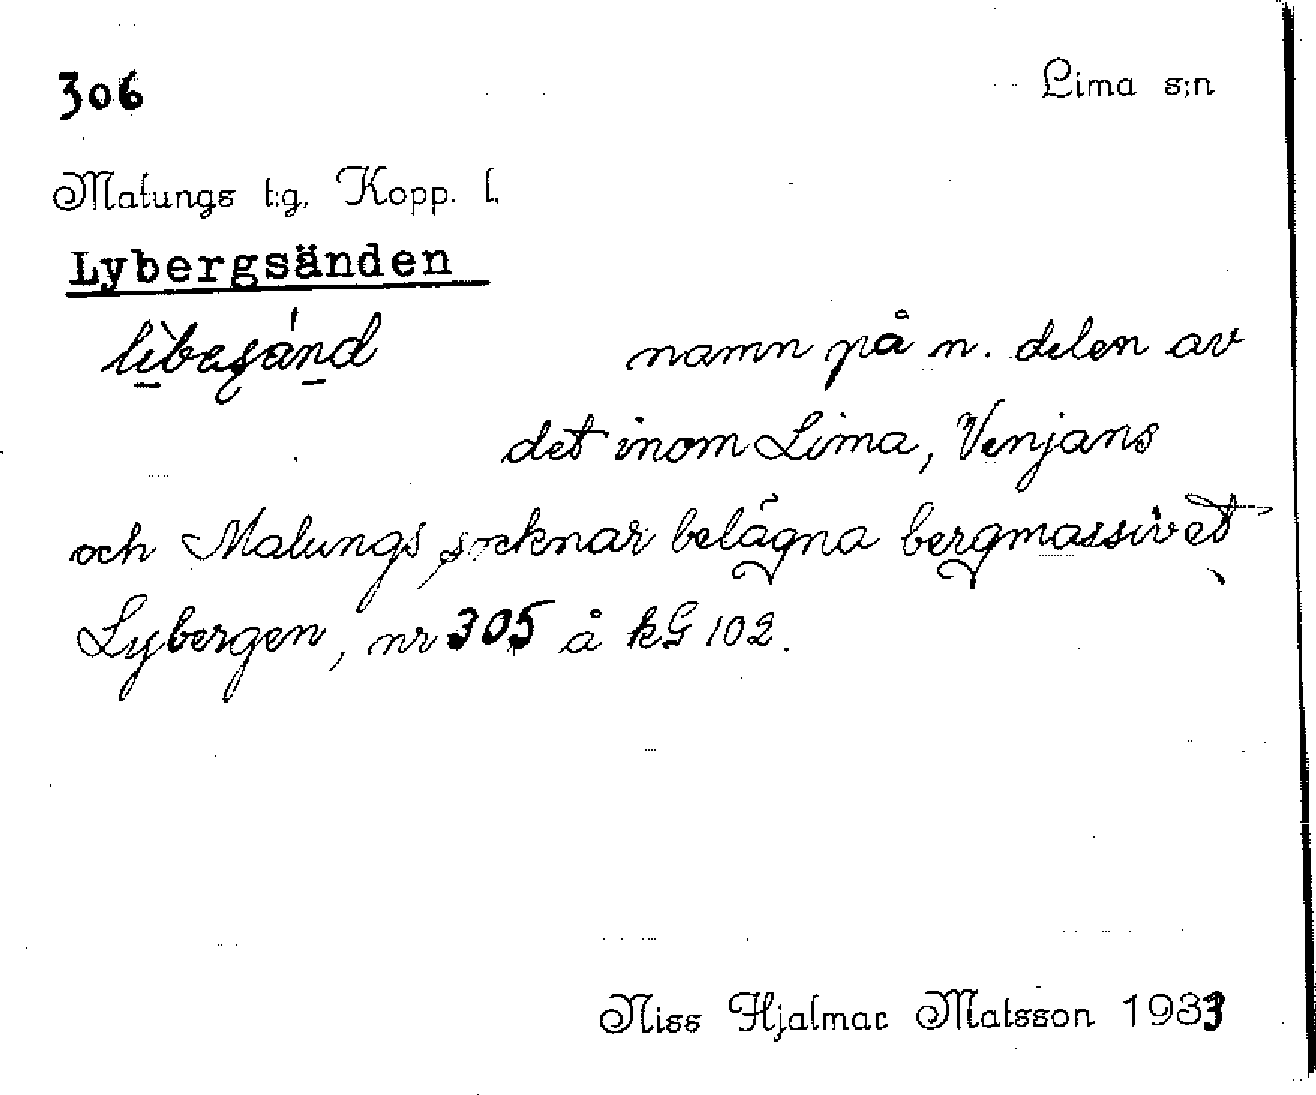 306
Lima s:n
Malungs t:g. Kopp. l.
Lybergsänden
namn på n. delen av
det inom Lima, Venjans
och Malungs socknar belägna bergmassivet
Lybergen, nr 305 å kG 102.
Niss Hjalmar Matsson 1933